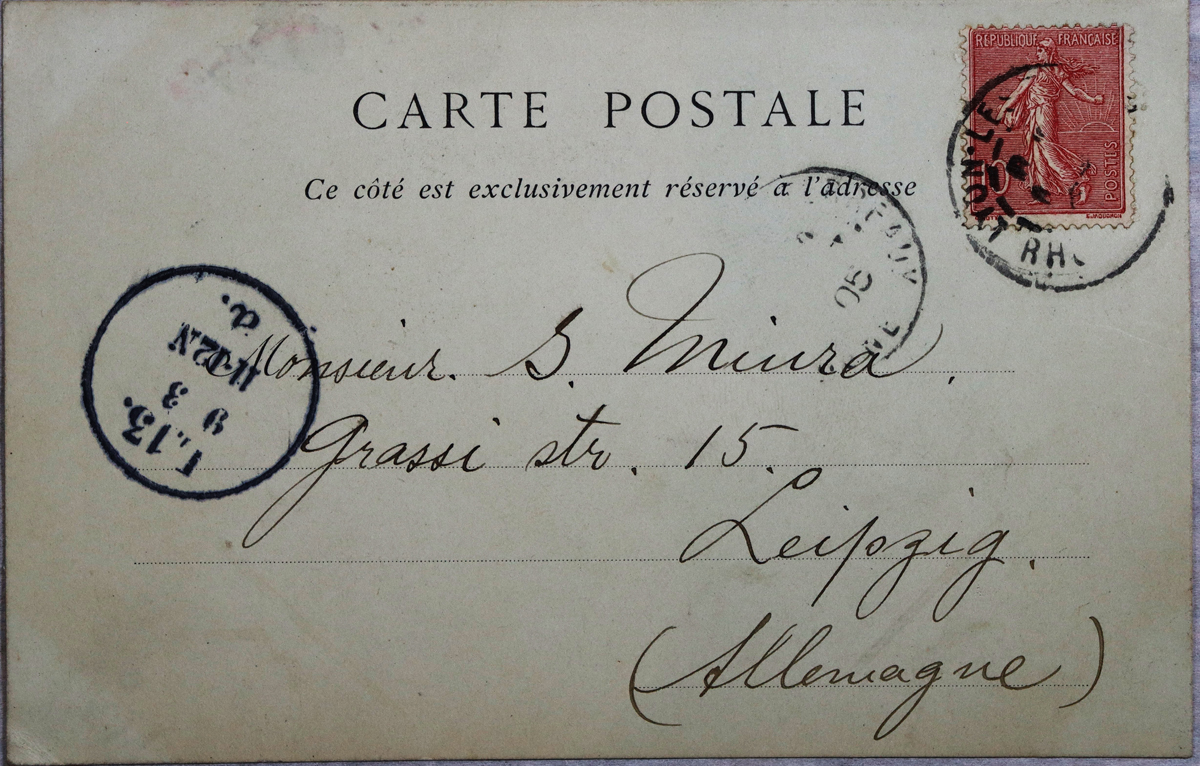 REPUBLIQUE FRANÇAISE
POSTES
10
CARTE POSTALE
Ce côté est exclusivement réservé à l'adresse
LYON-LE
RH
05
L.13.
9 3
11-12N
a.
Monsieur. S. Miura.
Grassi str. 15.
Leipzig.
(Allemagne)